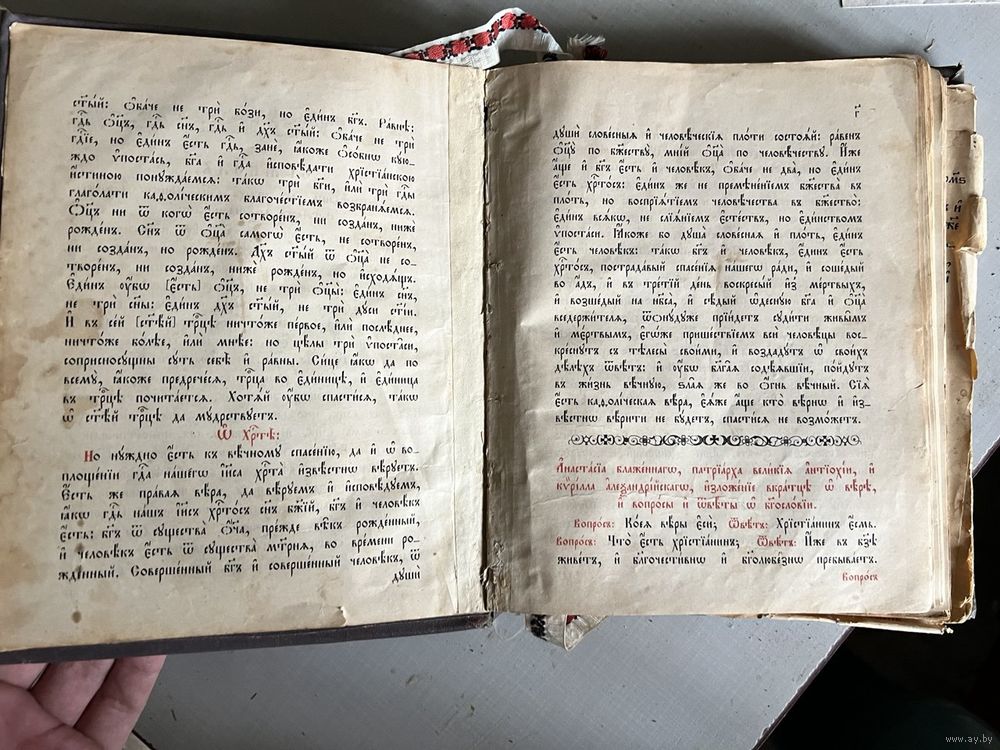 ст҃ы́й: ѻ҆ба́че не трѝ бо́зи, но є҆ди́нъ бг҃ъ. Ра́внѣ:
гдⷭ҇ь ѻ҆ц҃ъ, гдⷭ҇ь сн҃ъ, гдⷭ҇ь и҆ дх҃ъ ст҃ы́й: ѻ҆ба́че не трѝ
гдⷭ҇іе, но є҆ди́нъ є҆́сть гдⷭ҇ь, занѐ, ꙗ҆́коже ѻ҆со́бнѡ кꙋ́ю-
ждо ѵ҆поста́сь, бг҃а и҆ гдⷭ҇а и҆сповѣ́дати хрїстїа́нскою
и҆́стиною понꙋжда́емсѧ: та́кѡ трѝ бг҃и, и҆лѝ трѝ гдⷭ҇ы
глаго́лати каѳоли́ческимъ благоче́стїемъ возбранѧ́емсѧ.
Ѻ҆ц҃ъ ни ѿ когѡ̀ є҆́сть сотворе́нъ, ни со́зданъ, ниже́
рожде́нъ. Сн҃ъ ѿ ѻ҆ц҃а̀ самогѡ̀ є҆́сть, не сотворе́нъ,
ни со́зданъ, но рожде́нъ. Дх҃ъ ст҃ы́й ѿ ѻ҆ц҃а̀ не со-
творе́нъ, ни со́зданъ, ниже́ рожде́нъ, но и҆сходѧ́щъ.
Є҆ди́нъ ᲂу҆̀бѡ [є҆́сть] ѻ҆ц҃ъ, не трѝ ѻ҆ц҃ы̀: є҆ди́нъ сн҃ъ,
не трѝ сн҃ы: є҆ди́нъ дх҃ъ ст҃ы́й, не трѝ дꙋ́си ст҃і́и.
И҆ въ се́й [ст҃ѣ́й] трⷪ҇цѣ ничто́же пе́рвое, и҆лѝ послѣ́днее,
ничто́же бо́лѣе, и҆лѝ мнѣ́е: но цѣ́лы трѝ ѵ҆поста̑си,
соприсносꙋ́щны сꙋ́ть себѣ̀ и҆ ра́вны. Си́це ꙗ҆́кѡ да по
всемꙋ̀, ꙗ҆́коже предрече́сѧ, трⷪ҇ца во є҆ди́ницѣ, и҆ є҆ди́ница
въ трⷪ҇цѣ почита́етсѧ. Хотѧ́й ᲂу҆̀бѡ спасти́сѧ, та́кѡ
ѡ҆ ст҃ѣ́й трⷪ҇цѣ да мꙋ́дрствꙋетъ.
Ѡ҆ Хрⷭ҇тѣ̀:
Но нꙋ́ждно є҆́сть къ вѣ́чномꙋ спасе́нїю, да и҆ ѡ҆ во-
площе́нїи гдⷭ҇а на́шегѡ і҆и҃са хрⷭ҇та̀ и҆звѣ́стнѡ вѣ́рꙋетъ.
Є҆́сть же пра́ваѧ вѣ́ра, да вѣ́рꙋемъ и҆ и҆сповѣ́дꙋемъ,
ꙗ҆́кѡ гдⷭ҇ь на́шъ і҆и҃съ хрⷭ҇то́съ сн҃ъ бж҃їй, бг҃ъ и҆ человѣ́къ
є҆́сть: бг҃ъ ѿ сꙋщества̀ ѻ҆́ч҃а, пре́жде вѣ̑къ рожде́нный,
и҆ человѣ́къ є҆́сть ѿ сꙋщества̀ мт҃рнѧ, во вре́мени ро-
жде́нный. Соверше́нный бг҃ъ и҆ соверше́нный человѣ́къ, ѿ
дꙋшѝ
г҃
дꙋшѝ слове́сныѧ и҆ человѣ́ческїѧ пло́ти состоѧ́й: ра́венъ
ѻ҆ц҃ꙋ̀ по бж҃ествꙋ̀, мні́й ѻ҆ц҃а̀ по человѣ́чествꙋ. И҆́же
а҆́ще и҆ бг҃ъ є҆́сть и҆ человѣ́къ, ѻ҆ба́че не два̀, но є҆ди́нъ
є҆́сть хрⷭ҇то́съ: є҆ди́нъ же не премѣне́нїемъ бж҃ества̀ въ
пло́ть, но воспрїѧ́тїемъ человѣ́чества въ бж҃ество̀:
є҆ди́нъ всѧ́кѡ, не слїѧ́нїемъ є҆сте́ствъ, но є҆ди́нствомъ
ѵ҆поста́си. Ꙗ҆́коже бо дꙋша̀ слове́снаѧ и҆ пло́ть, є҆ди́нъ
є҆́сть человѣ́къ: та́кѡ бг҃ъ и҆ человѣ́къ, є҆ди́нъ є҆́сть
хрⷭ҇то́съ, пострада́вый спасе́нїѧ на́шегѡ ра́ди, и҆ соше́дый
во а҆́дъ, и҆ въ тре́тїй де́нь воскресы́й и҆з̾ ме́ртвыхъ,
и҆ возше́дый на нб҃са̀, и҆ сѣдѧ́й ѡ҆деснꙋ́ю бг҃а и҆ ѻ҆ц҃а̀
вседержи́телѧ, ѿѻнꙋ́дꙋже прїи́детъ сꙋди́ти живы̑мъ
и҆ мє́ртвымъ, є҆гѡ́же прише́ствїемъ всѝ человѣ́цы вос-
кре́снꙋтъ съ тѣлесы̀ свои́ми, и҆ воздадѧ́тъ ѡ҆ свои́хъ
дѣ́лѣхъ ѿвѣ́тъ: и҆ ᲂу҆̀бѡ блага̑ѧ содѣ́ѧвшїи, по́йдꙋтъ
въ жи́знь вѣ́чнꙋю, ѕла̑ѧ же во ѻ҆́гнь вѣ́чный. Сїѧ̀
є҆́сть каѳоли́ческаѧ вѣ́ра, є҆ѧ́же а҆́ще кто̀ вѣ́рнѡ и҆ и҆з-
вѣ́стнѡ вѣ́рити не бꙋ́детъ, спасти́сѧ не возмо́жетъ.
А҆наста́сїа блаже́ннагѡ, патрїа́рха вели́кїѧ а҆нтїохі́и, и҆
кѷрі́лла а҆леѯандрі́йскагѡ, и҆зложе́нїе вкра́тцѣ ѡ҆ вѣ́рѣ,
и҆ вопро́сы и҆ ѿвѣ́ты ѡ҆ бг҃осло́вїи.
Вопро́съ: Ко́еѧ вѣ́ры є҆сѝ; Ѿвѣ́тъ: Хрїстїа́нинъ є҆́смь.
Вопро́съ: Что̀ є҆́сть хрїстїа́нинъ; Ѿвѣ́тъ: И҆́же въ бз҃ѣ
живе́тъ, и҆ благочести́внѡ и҆ бг҃олюбе́знѡ пребыва́етъ.
Вопро́съ
www.ay.by